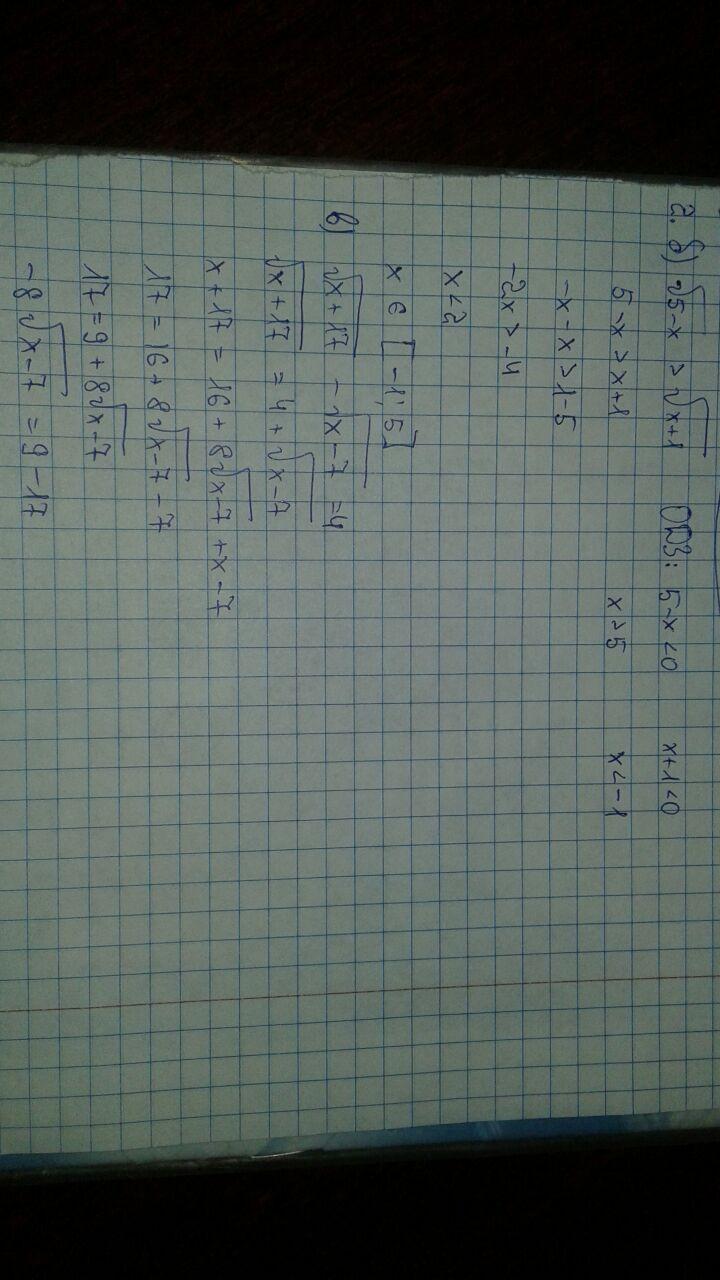 2. б) √5-x > √x+1 ОДЗ: 5-x<0 x+1<0
5-x > x+1 x>5 x<-1
-x-x>1-5
-2x>-4
x<2
x ∈ [-1; 5]
в) √x+17 - √x-7 = 4
√x+17 = 4+√x-7
x+17 = 16+8√x-7 +x-7
17 = 16+8√x-7 -7
17 = 9+8√x-7
-8√x-7 = 9-17